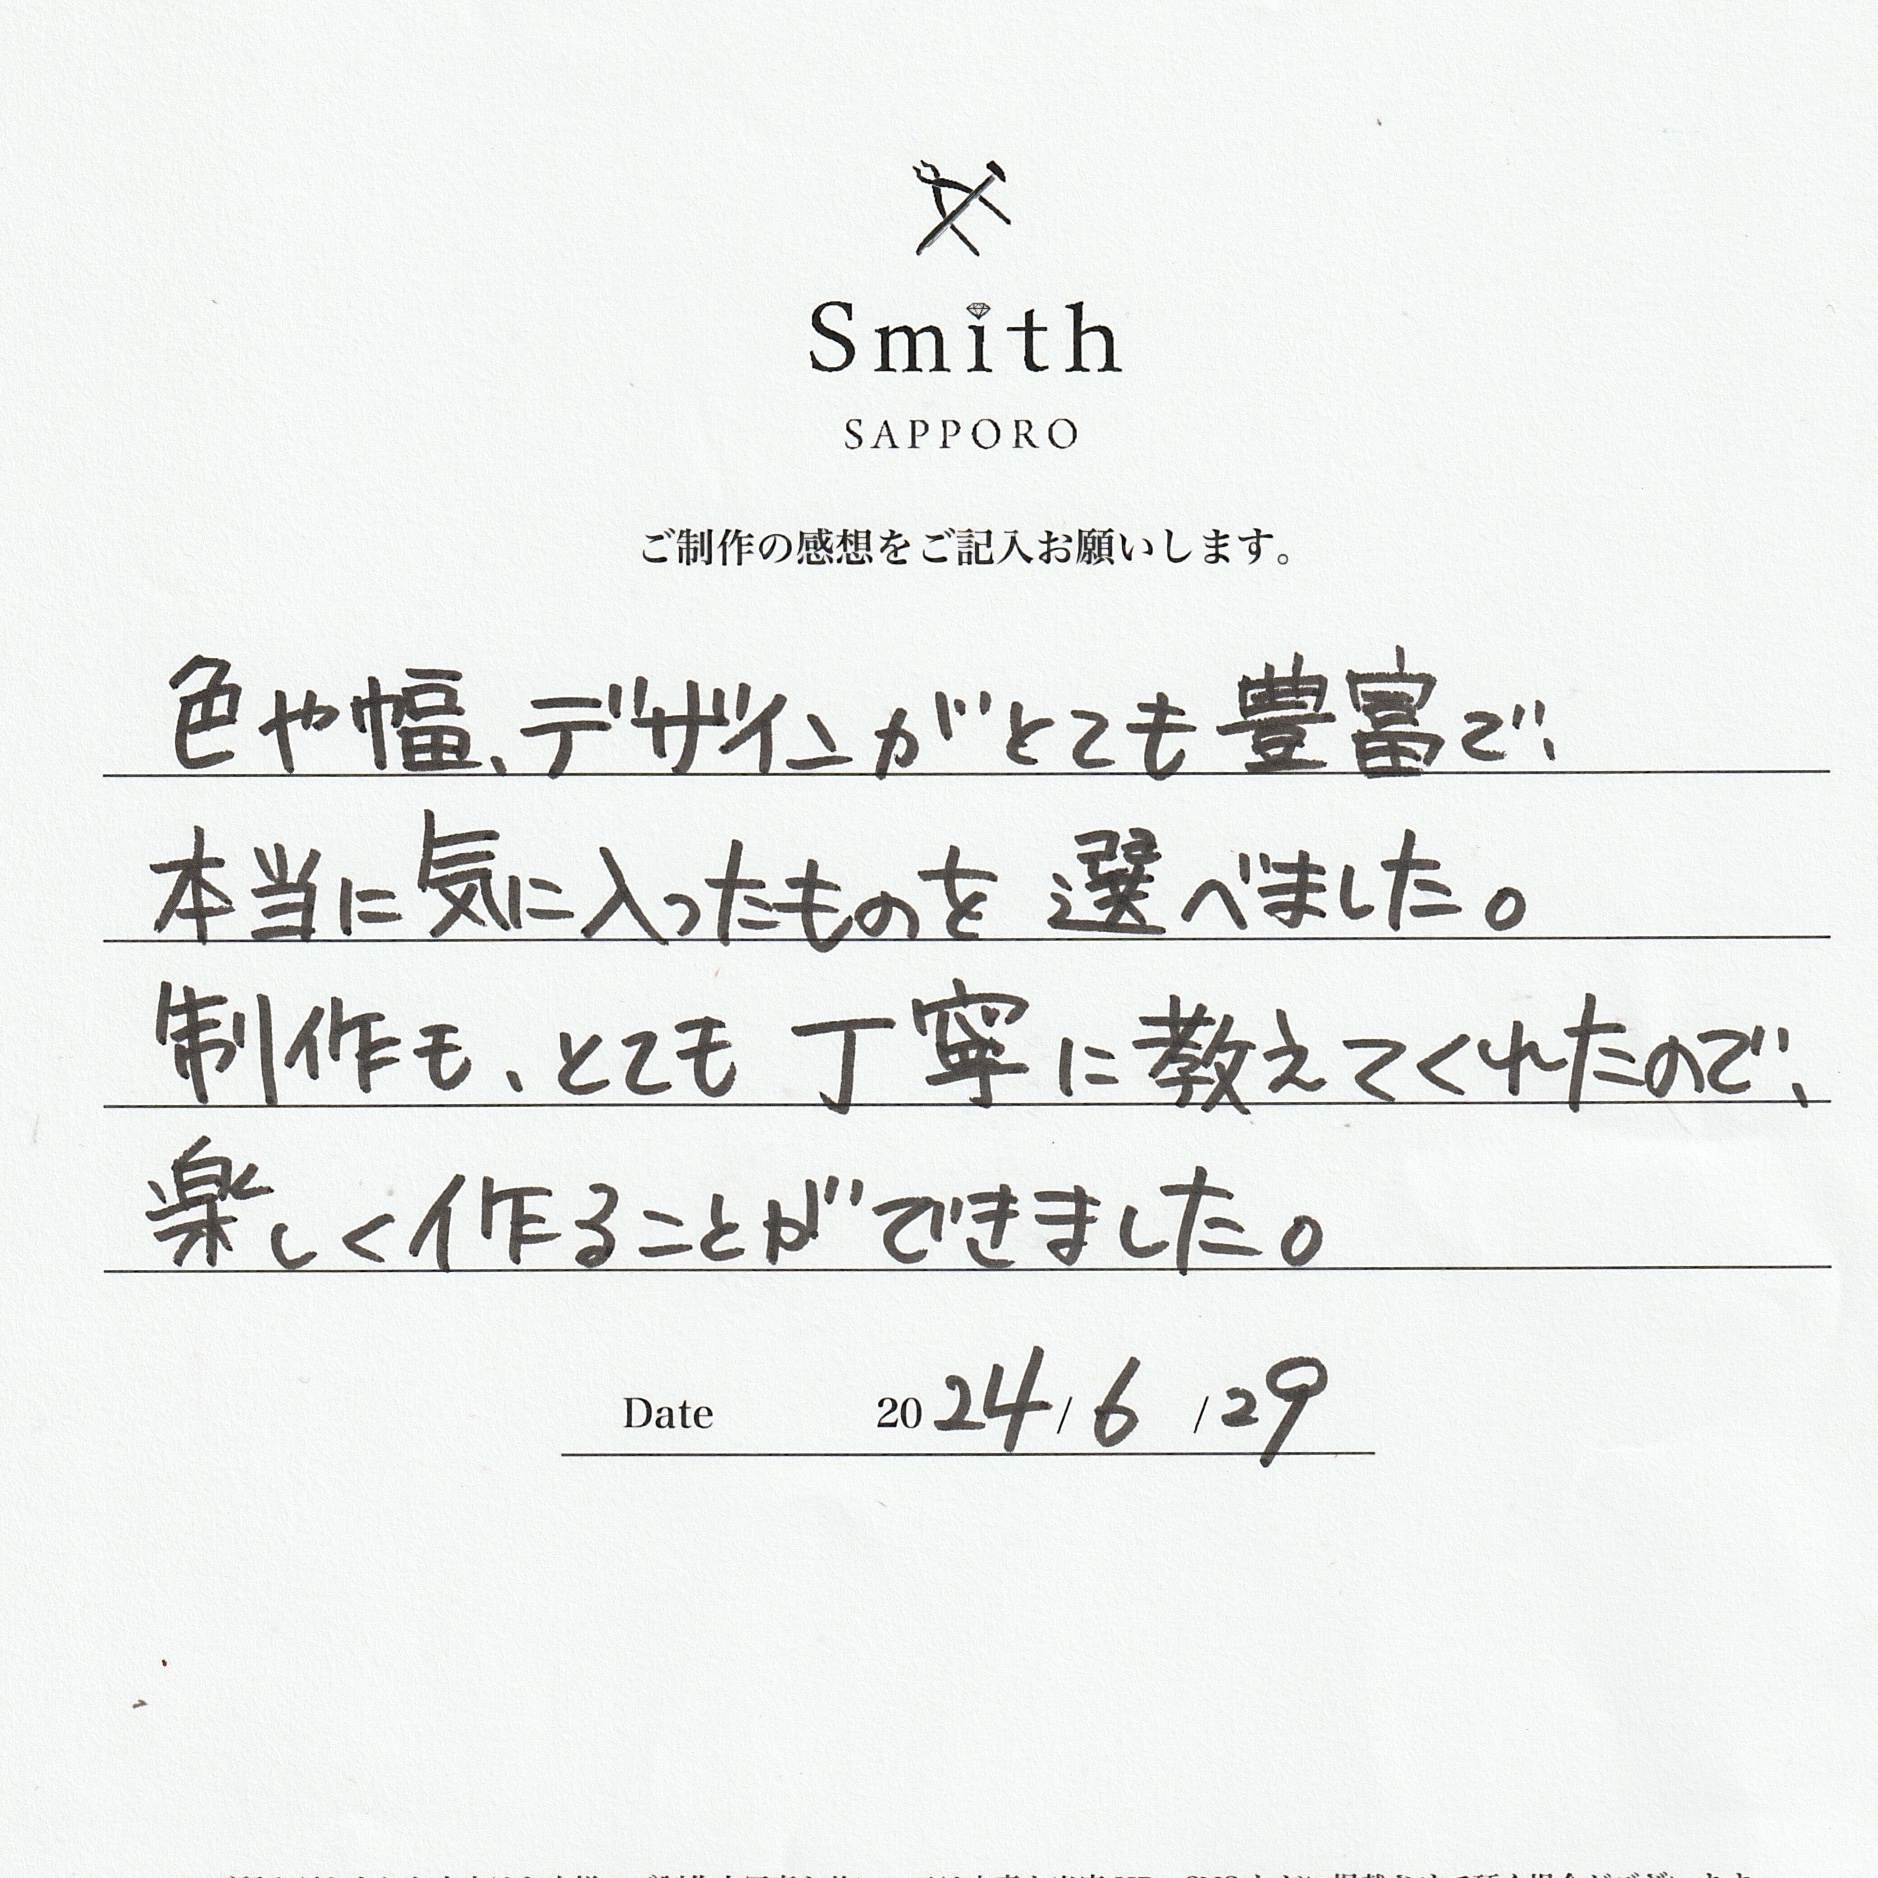 Smith
SAPPORO
ご制作の感想をご記入お願いします。
色や幅、デザインがとても豊富で、
本当に気に入ったものを選べました。
制作も、とても丁寧に教えてくれたので、
楽しく作ることができました。
Date 2024/6/29